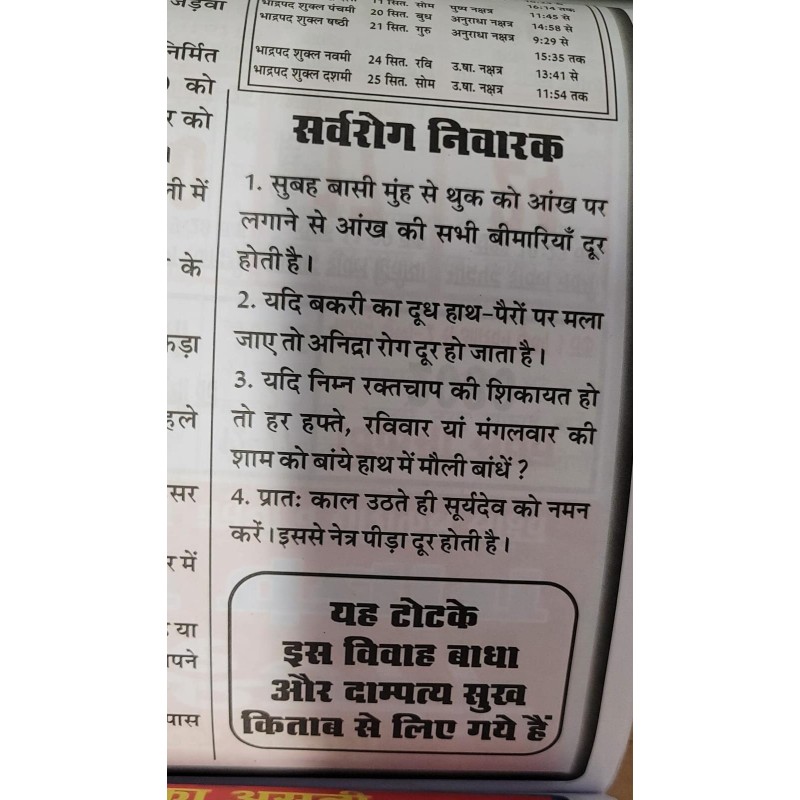 जड़वा
निर्मित
को
र को
नी में
के
कड़ा
हले
सर
र में
या
पने
पास
भाद्रपद शुक्ल पंचमी 20 सित. बुध पुष्प नक्षत्र 16:14 तक
भाद्रपद शुक्ल षष्ठी 21 सित. गुरु अनुराधा नक्षत्र 11:45 से
अनुराधा नक्षत्र 14:58 से
9:29 से
भाद्रपद शुक्ल नवमी 24 सित. रवि उ.षा. नक्षत्र 15:35 तक
भाद्रपद शुक्ल दशमी 25 सित. सोम उ.षा. नक्षत्र 13:41 से
11:54 तक
सर्वरोग निवारक
1. सुबह बासी मुंह से थुक को आंख पर
लगाने से आंख की सभी बीमारियाँ दूर
होती है।
2. यदि बकरी का दूध हाथ-पैरों पर मला
जाए तो अनिद्रा रोग दूर हो जाता है।
3. यदि निम्न रक्तचाप की शिकायत हो
तो हर हफ्ते, रविवार यां मंगलवार की
शाम को बांये हाथ में मौली बांधें ?
4. प्रातः काल उठते ही सूर्यदेव को नमन
करें। इससे नेत्र पीड़ा दूर होती है।
यह टोटके
इस विवाह बाधा
और दाम्पत्य सुख
किताब से लिए गये हैं